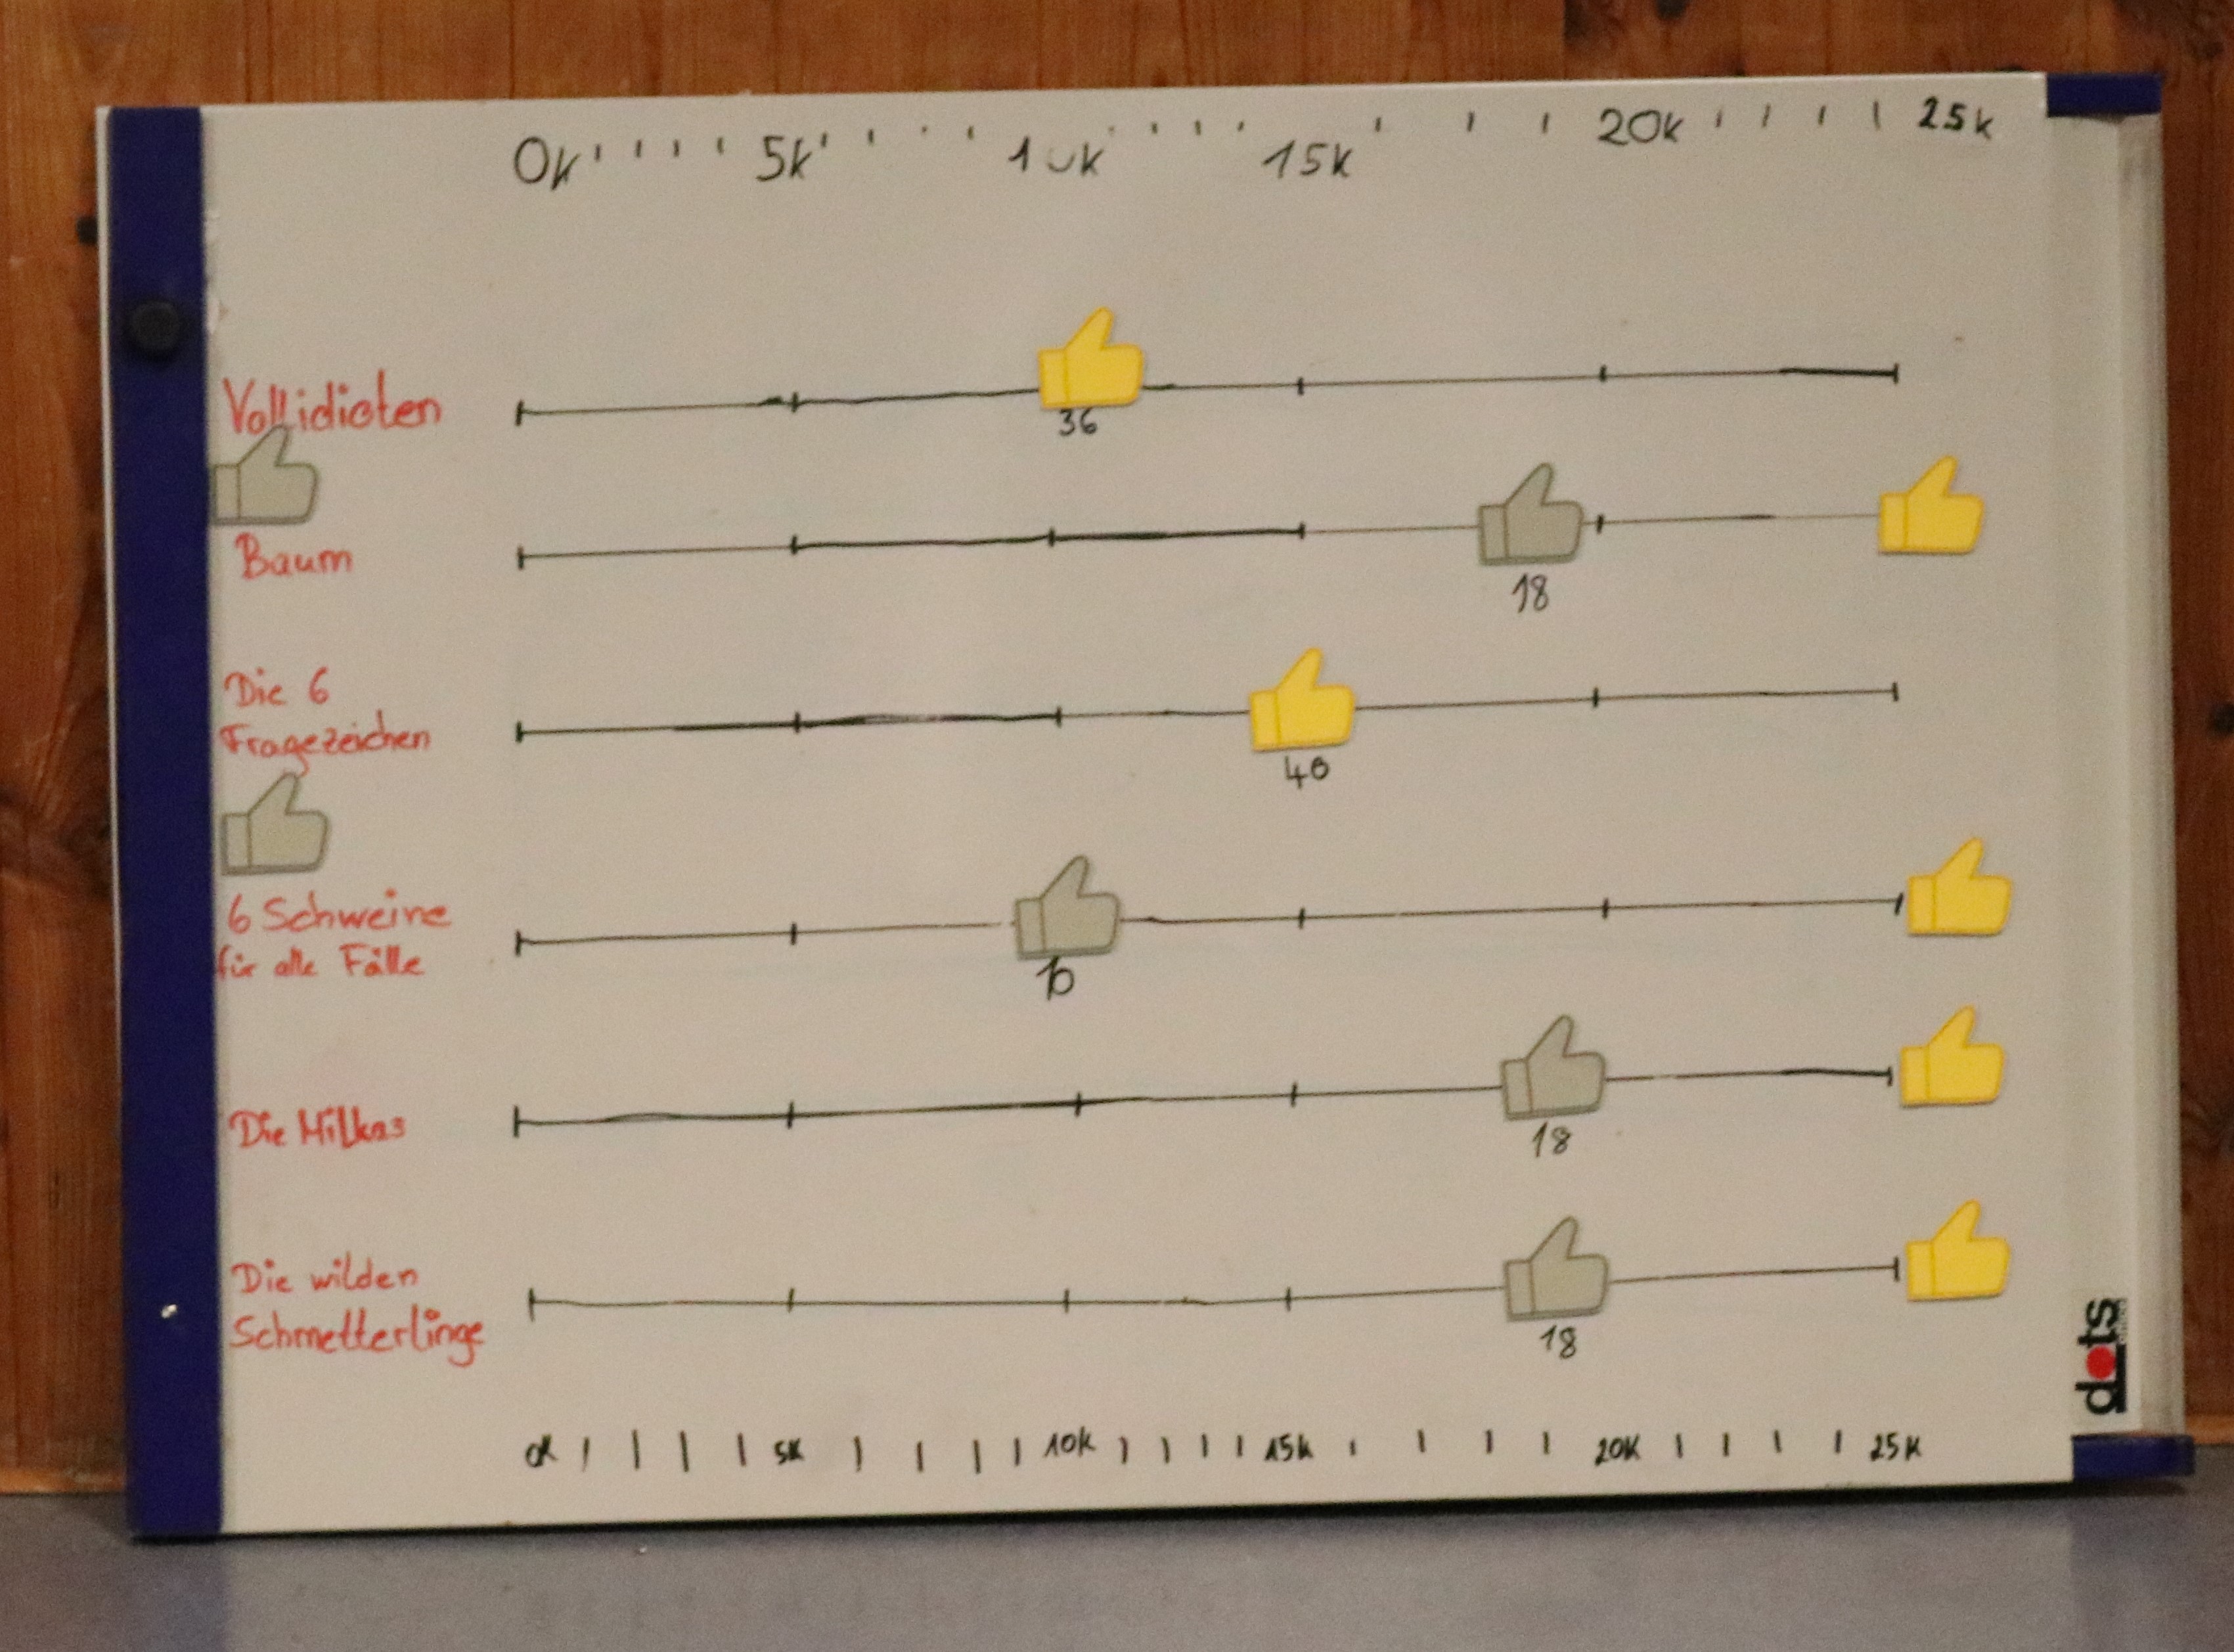 0k 5k 10k 15k 20k 25k
Vollidioten
36
Baum
18
Die 6
Fragezeichen
40
6 Schweine
für alle Fälle
10
Die Milkas
18
Die wilden
Schmetterlinge
18
0k 5k 10k 15k 20k 25k
dots